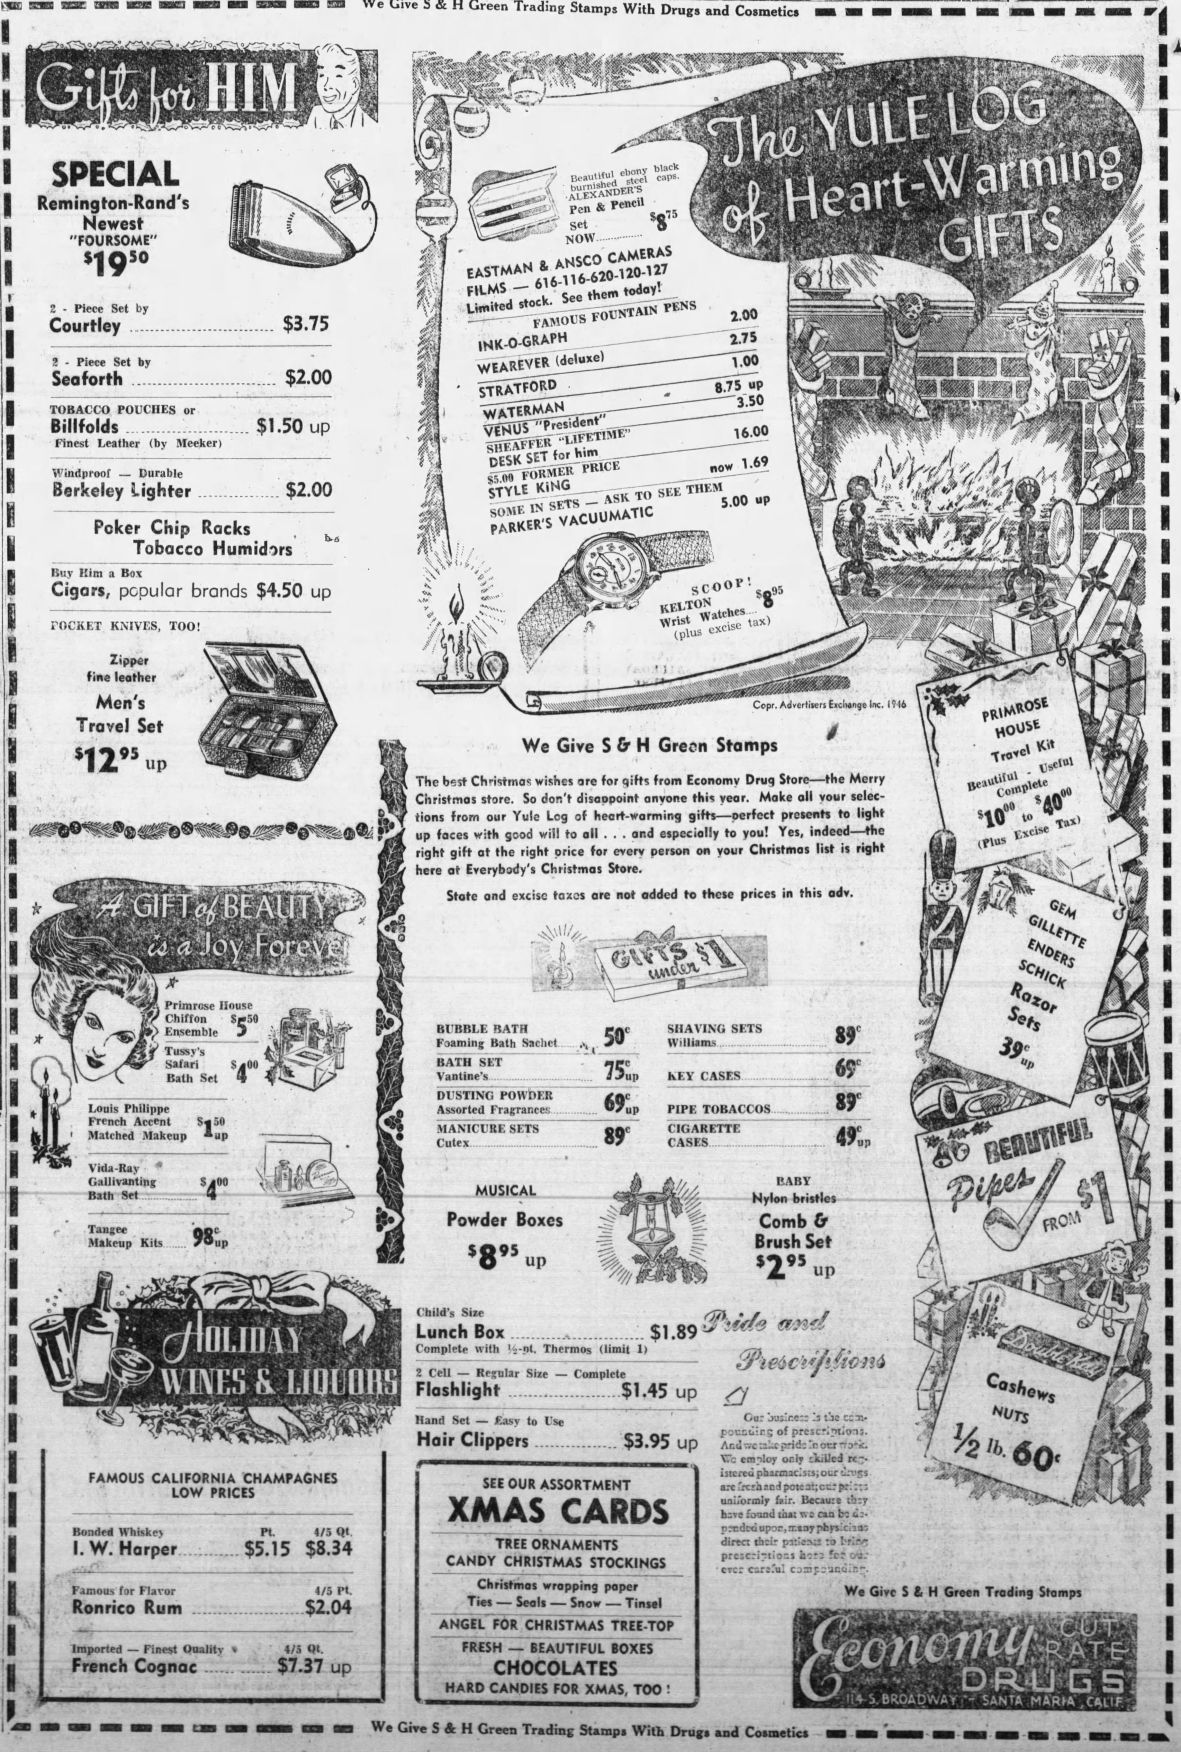 We Give S & H Green Trading Stamps With Drugs and Cosmetics
Gifts for HIM
SPECIAL
Remington-Rand's
Newest
"FOURSOME"
$19 50
2 - Piece Set by
Courtley $3.75
2 - Piece Set by
Seaforth $2.00
TOBACCO POUCHES or
Billfolds $1.50 up
Finest Leather (by Meeker)
Windproof — Durable
Berkeley Lighter $2.00
Poker Chip Racks
Tobacco Humidors
Buy Him a Box
Cigars, popular brands $4.50 up
POCKET KNIVES, TOO!
Zipper
fine leather
Men's
Travel Set
$12 95 up
A GIFT of BEAUTY
is a Joy Forever
Primrose House
Chiffon $5 50
Ensemble
Tussy's
Safari $4 00
Bath Set
Louis Philippe
French Accent $1 50
Matched Makeup up
Vida-Ray
Gallivanting $4 00
Bath Set
Tangee
Makeup Kits 98c up
HOLIDAY
WINES & LIQUORS
FAMOUS CALIFORNIA CHAMPAGNES
LOW PRICES
Bonded Whiskey Pt. 4/5 Qt.
I. W. Harper $5.15 $8.34
Famous for Flavor 4/5 Pt.
Ronrico Rum $2.04
Imported — Finest Quality 4/5 Qt.
French Cognac $7.37 up
The YULE LOG
of Heart-Warming
GIFTS
Beautiful ebony black
burnished steel caps.
ALEXANDER'S
Pen & Pencil
Set $8 75
NOW
EASTMAN & ANSCO CAMERAS
FILMS — 616-116-620-120-127
Limited stock. See them today!
FAMOUS FOUNTAIN PENS
INK-O-GRAPH 2.00
WEAREVER (deluxe) 2.75
STRATFORD 1.00
WATERMAN 8.75 up
VENUS "President" 3.50
SHEAFFER "LIFETIME"
DESK SET for him 16.00
$5.00 FORMER PRICE
STYLE KING now 1.69
SOME IN SETS — ASK TO SEE THEM
PARKER'S VACUUMATIC 5.00 up
SCOOP!
KELTON
Wrist Watches $8 95
(plus excise tax)
Copr. Advertisers Exchange Inc. 1946
We Give S & H Green Stamps
The best Christmas wishes are for gifts from Economy Drug Store—the Merry
Christmas store. So don't disappoint anyone this year. Make all your selec-
tions from our Yule Log of heart-warming gifts—perfect presents to light
up faces with good will to all . . . and especially to you! Yes, indeed—the
right gift at the right price for every person on your Christmas list is right
here at Everybody's Christmas Store.
State and excise taxes are not added to these prices in this adv.
GIFTS under $1
BUBBLE BATH
Foaming Bath Sachet 50c
BATH SET
Vantine's 75c up
DUSTING POWDER
Assorted Fragrances 69c up
MANICURE SETS
Cutex 89c
SHAVING SETS
Williams 89c
KEY CASES 69c
PIPE TOBACCOS 89c
CIGARETTE
CASES 49c up
MUSICAL
Powder Boxes
$8 95 up
BABY
Nylon bristles
Comb &
Brush Set
$2 95 up
Child's Size
Lunch Box $1.89
Complete with ½-pt. Thermos (limit 1)
2 Cell — Regular Size — Complete
Flashlight $1.45 up
Hand Set — Easy to Use
Hair Clippers $3.95 up
SEE OUR ASSORTMENT
XMAS CARDS
TREE ORNAMENTS
CANDY CHRISTMAS STOCKINGS
Christmas wrapping paper
Ties — Seals — Snow — Tinsel
ANGEL FOR CHRISTMAS TREE-TOP
FRESH — BEAUTIFUL BOXES
CHOCOLATES
HARD CANDIES FOR XMAS, TOO!
Pride and
Prescriptions
Our business is the com-
pounding of prescriptions.
And we take pride in our work.
We employ only skilled reg-
istered pharmacists; our drugs
are fresh and potent; our prices
uniformly fair. Because they
have found that we can be de-
pended upon, many physicians
direct their patients to bring
prescriptions here for our
ever careful compounding.
PRIMROSE
HOUSE
Travel Kit
Beautiful - Useful
Complete
$10 00 to $40 00
(Plus Excise Tax)
GEM
GILLETTE
ENDERS
SCHICK
Razor
Sets
39c
up
BEAUTIFUL
Pipes
FROM $1
Double Kay
Cashews
NUTS
1/2 lb. 60c
We Give S & H Green Trading Stamps
Economy CUT
RATE
DRUGS
114 S. BROADWAY - SANTA MARIA, CALIF.
We Give S & H Green Trading Stamps With Drugs and Cosmetics